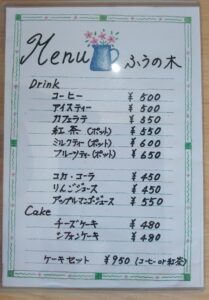 Menu ふうの木
Drink
コーヒー ¥500
アイスティー ¥500
カフェラテ ¥550
紅茶(ポット) ¥550
ミルクティー(ポット) ¥600
フルーツティー(ポット) ¥650
コカ・コーラ ¥450
りんごジュース ¥450
アップルマンゴージュース ¥550
Cake
チーズケーキ ¥480
シフォンケーキ ¥480
ケーキセット ¥950(コーヒーor紅茶)